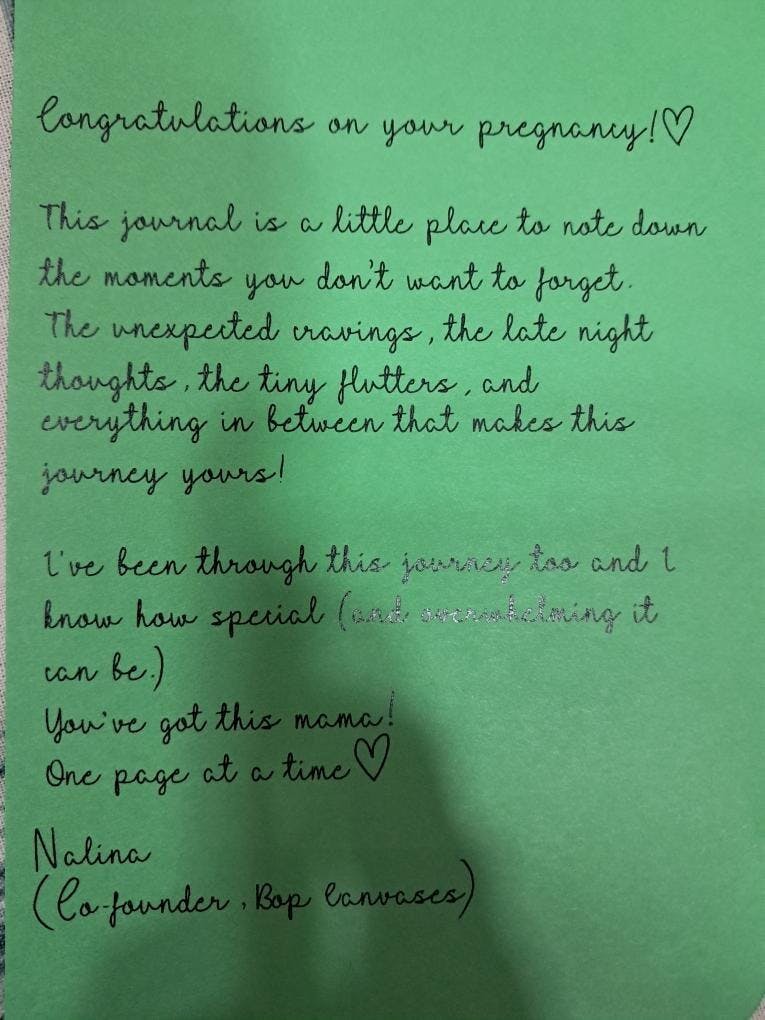 Congratulations on your pregnancy!♡
This journal is a little place to note down
the moments you don't want to forget.
The unexpected cravings, the late night
thoughts, the tiny flutters, and
everything in between that makes this
journey yours!
I've been through this journey too and I
know how special (and overwhelming it
can be.)
You've got this mama!
One page at a time♡
Nalina
(Co-founder, Bop Canvases)